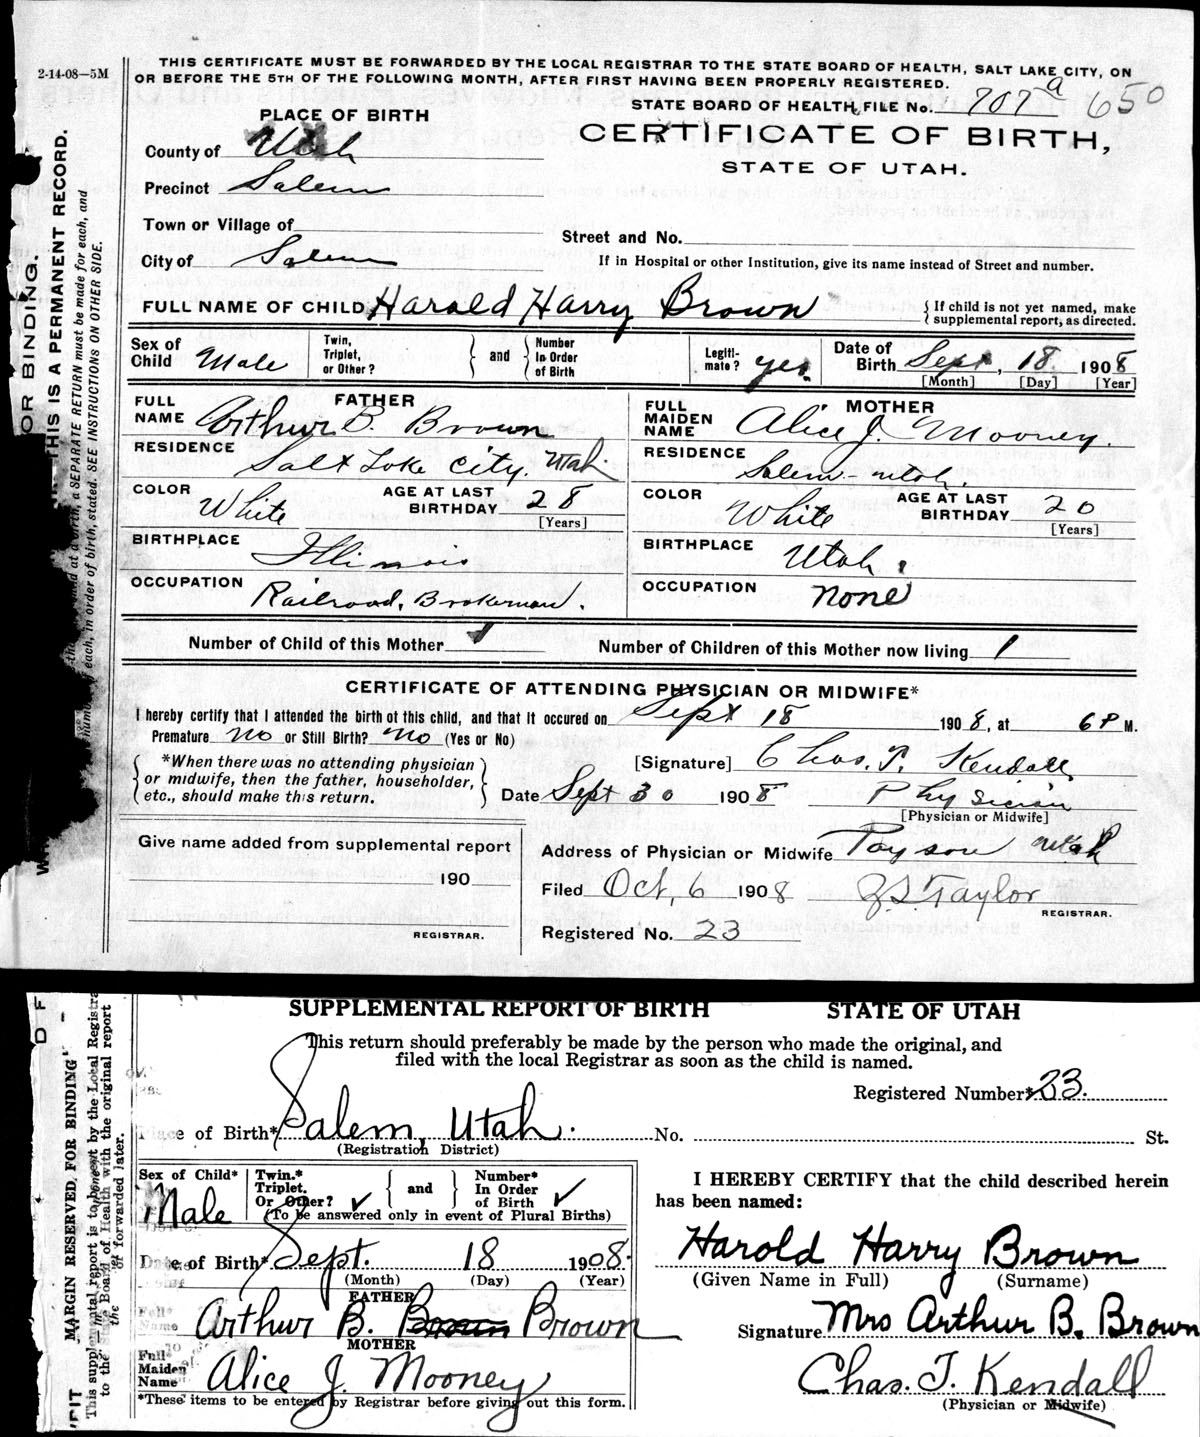 2-14-08—5M
THIS CERTIFICATE MUST BE FORWARDED BY THE LOCAL REGISTRAR TO THE STATE BOARD OF HEALTH, SALT LAKE CITY, ON
OR BEFORE THE 5TH OF THE FOLLOWING MONTH, AFTER FIRST HAVING BEEN PROPERLY REGISTERED.
STATE BOARD OF HEALTH, FILE No. 707 a 650
PLACE OF BIRTH
CERTIFICATE OF BIRTH,
STATE OF UTAH.
County of Utah
Precinct Salem
Town or Village of
Street and No.
City of Salem
If in Hospital or other Institution, give its name instead of Street and number.
FULL NAME OF CHILD Harold Harry Brown { If child is not yet named, make
supplemental report, as directed.
Sex of Child Male Twin, Triplet, or Other? } and { Number In Order of Birth Legiti-mate? yes. Date of Birth Sept, 18 1908
[Month] [Day] [Year]
FATHER
FULL NAME Arthur B. Brown
MOTHER
FULL MAIDEN NAME Alice J. Mooney.
RESIDENCE Salt Lake City, Utah
RESIDENCE Salem - Utah.
COLOR White AGE AT LAST BIRTHDAY 28 [Years]
COLOR White AGE AT LAST BIRTHDAY 20 [Years]
BIRTHPLACE Illinois
BIRTHPLACE Utah.
OCCUPATION Railroad, Brakeman.
OCCUPATION None
Number of Child of this Mother 1 Number of Children of this Mother now living 1
CERTIFICATE OF ATTENDING PHYSICIAN OR MIDWIFE*
I hereby certify that I attended the birth of this child, and that it occured on Sept 18 1908, at 6 P M.
Premature No or Still Birth? No (Yes or No)
{ *When there was no attending physician
or midwife, then the father, householder,
etc., should make this return. }
[Signature] Chas. T. Kendall
Date Sept 30 1908 Physician
[Physician or Midwife]
Give name added from supplemental report
190
REGISTRAR.
Address of Physician or Midwife Payson Utah
Filed Oct, 6 1908 Taylor
REGISTRAR.
Registered No. 23
OR BINDING.
THIS IS A PERMANENT RECORD.
a SEPARATE RETURN must be made for each, and
each, in order of birth, stated. SEE INSTRUCTIONS ON OTHER SIDE.
SUPPLEMENTAL REPORT OF BIRTH STATE OF UTAH
This return should preferably be made by the person who made the original, and
filed with the local Registrar as soon as the child is named.
Registered Number* 23.
Place of Birth* Salem, Utah. No. St.
(Registration District)
Sex of Child* Male Twin.* Triplet. Or Other? ✓ } and { Number* In Order of Birth ✓
(To be answered only in event of Plural Births)
I HEREBY CERTIFY that the child described herein
has been named:
Date of Birth* Sept. 18 1908.
(Month) (Day) (Year)
Harold Harry Brown
(Given Name in Full) (Surname)
FATHER
Full* Name Arthur B. Brown Brown
Signature Mrs Arthur B. Brown
MOTHER
Full* Maiden Name* Alice J. Mooney
Chas. T. Kendall
(Physician or Midwife)
*These items to be entered by Registrar before giving out this form.
MARGIN RESERVED FOR BINDING
This supplemental report is to be sent by the Local Registra
to the State Board of Health with the original report
or forwarded later.